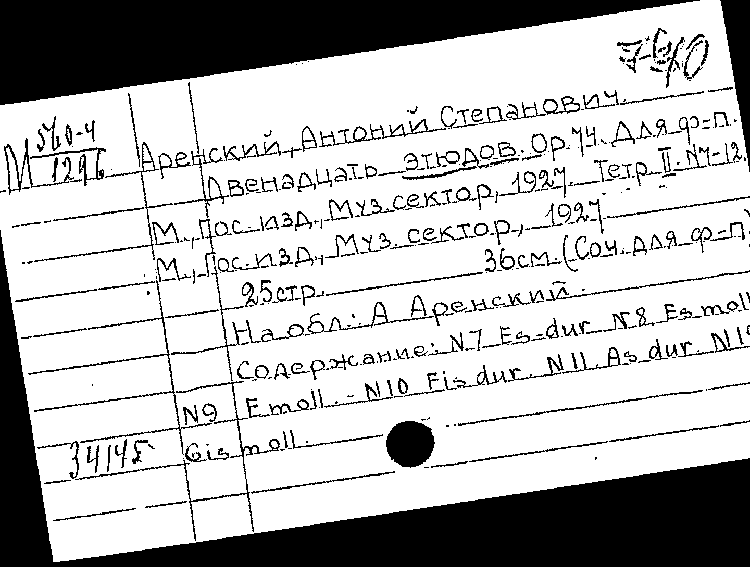 М 560-4
1296
Аренский, Антоний Степанович.
Двенадцать этюдов. Op. 74. Для ф=п.
М., Гос. изд., Муз. сектор, 1927. Тетр. II. N7-12
М., Гос. изд., Муз. сектор, 1927
25стр. 36см. (Соч. для ф=п)
На обл.: А Аренский.
Содержание: N.7 Es-dur N8. Es moll
N9 F moll. - N10 Fis dur. N11. As dur. N12
34145 Gis moll.